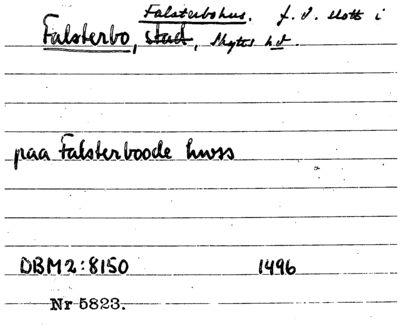 Falsterbohus. f. d. slott i
Falsterbo, stad, Skytts hd.
paa Falsterboode hwss
DBM2:8150 1496
Nr 5823.